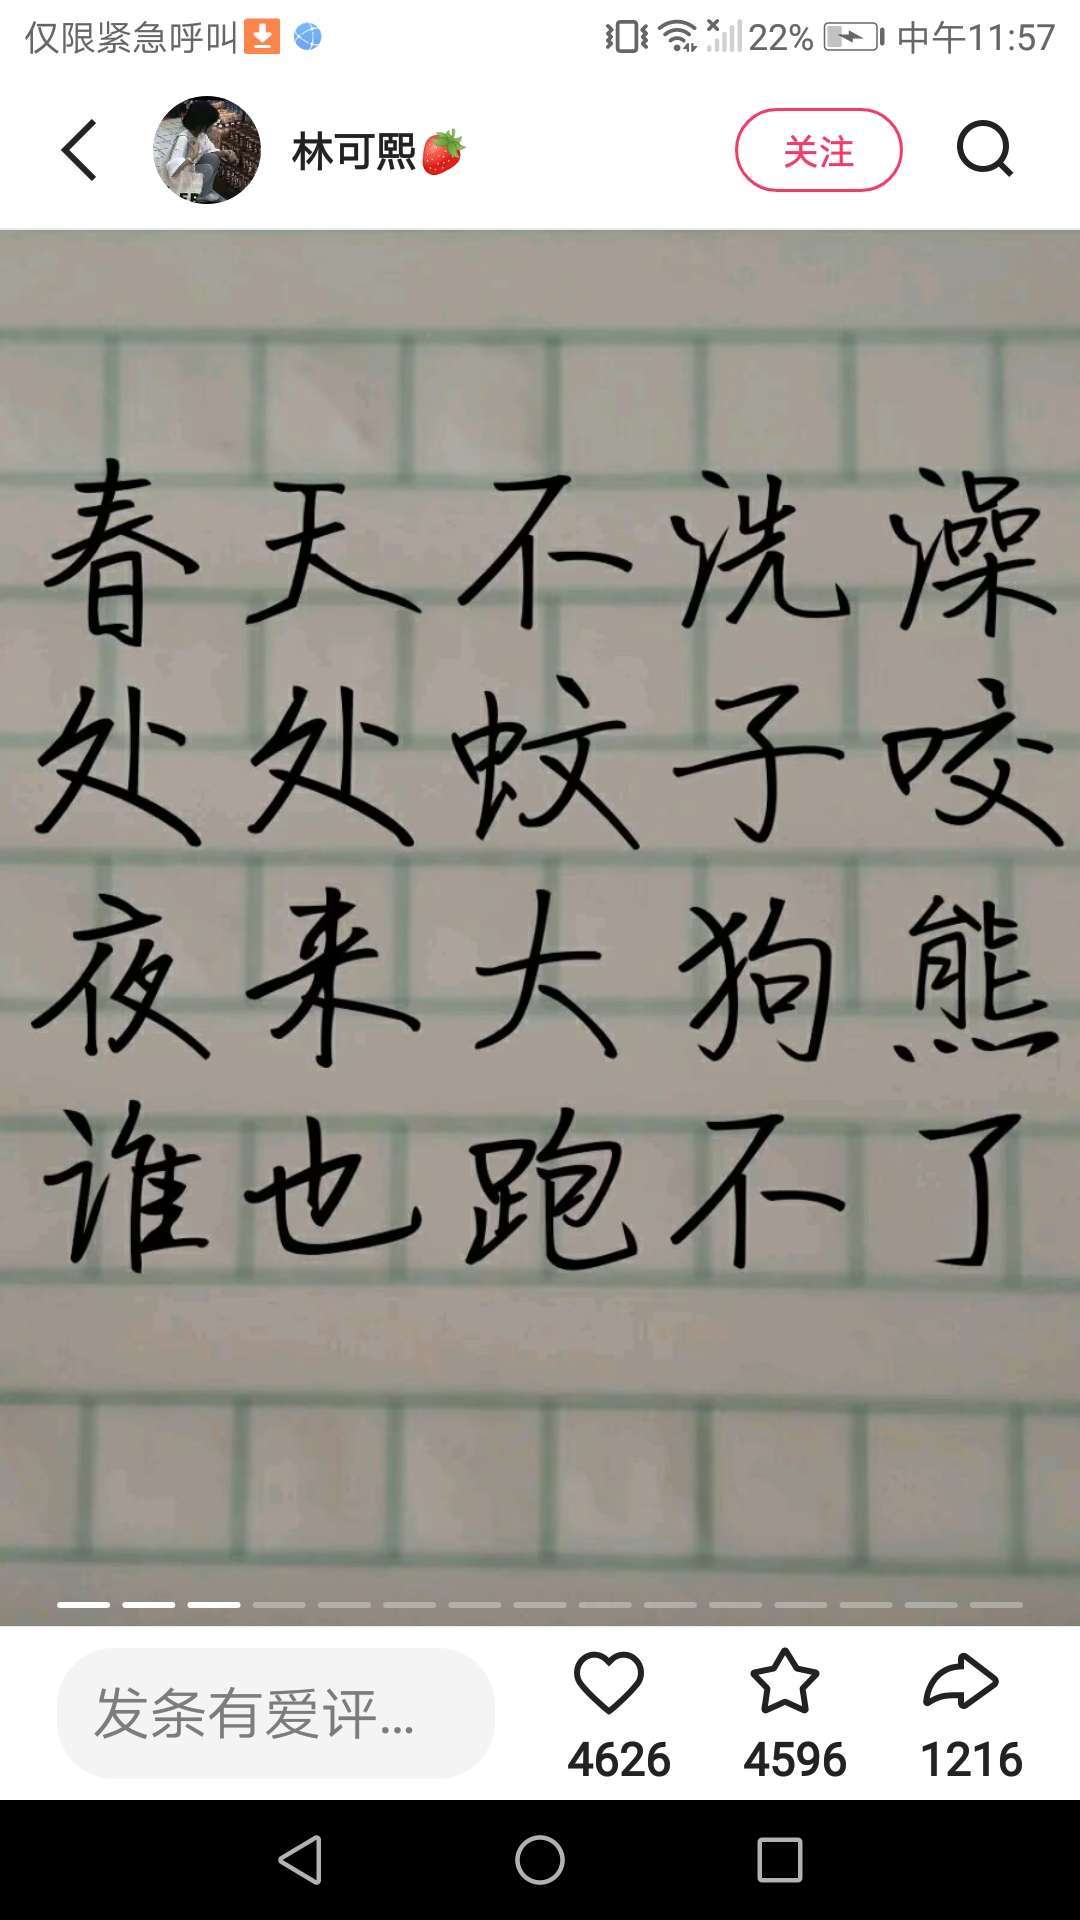 仅限紧急呼叫 22% 中午11:57
林可熙 关注
春天不洗澡
处处蚊子咬
夜来大狗熊
谁也跑不了
发条有爱评...
4626 4596 1216